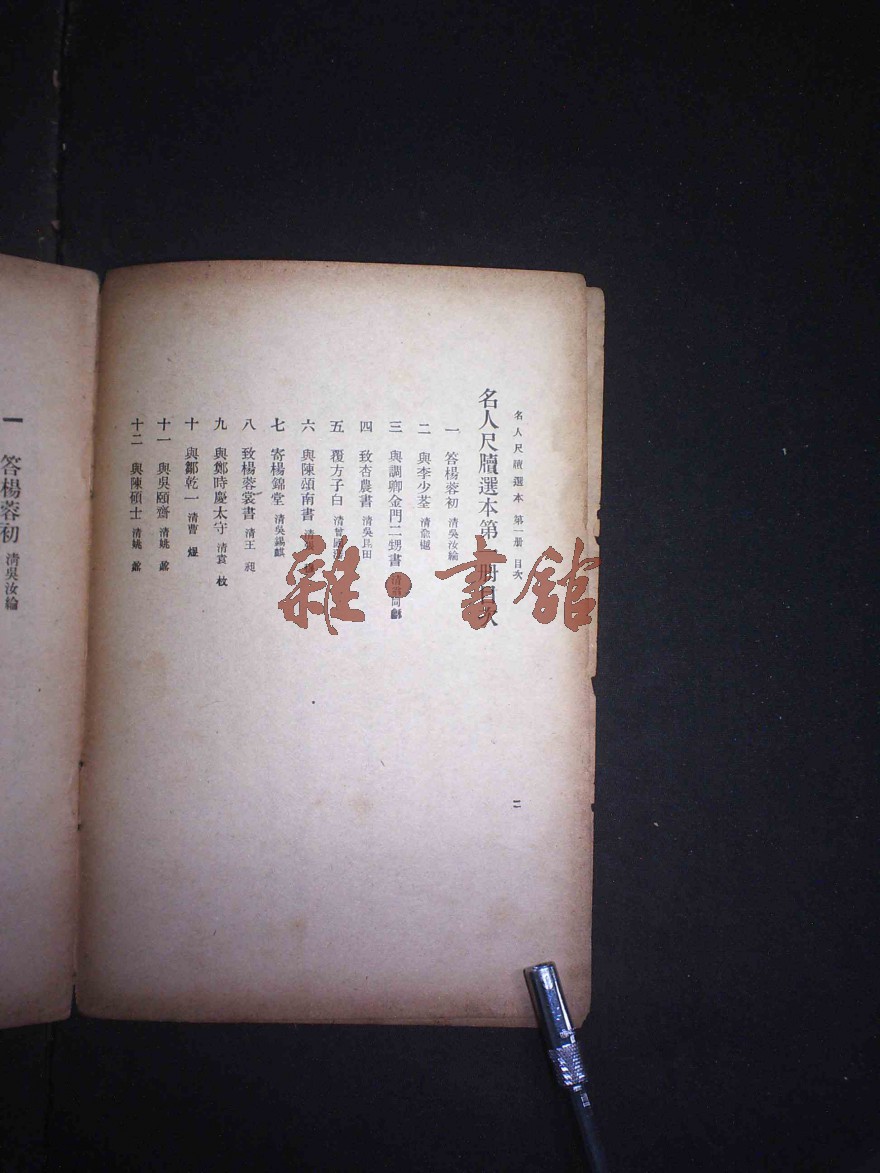 名人尺牘選本 第一册 目次
二
名人尺牘選本第一册目次
一 答楊蓉初 清吳汝綸
二 與李少荃 清俞樾
三 與調卿金門二甥書 清
四 致杏農書 清吳昆田
五 覆方子白 清曾國藩
六 與陳頌南書 清
七 寄楊錦堂 清吳錫麒
八 致楊蓉裳書 清王昶
九 與鄭時慶太守 清袁枚
十 與鄒乾一 清曹煜
十一 與吳頤齋 清姚鼐
十二 與陳碩士 清姚鼐
一 答楊蓉初 清吳汝綸
雜·書館